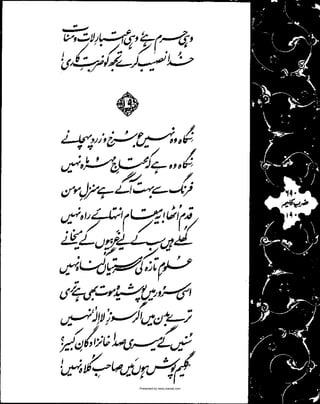 وہی حرم ہے وہی اعتبارِ لات و منات
خدا نصیب کرے تجھ کو ضربتِ کاری!
۱۹
نگاہ وہ نہیں جو سُرخ و زرد پہچانے
نگاہ وہ ہے کہ محتاجِ مہر و ماہ نہیں
فرنگ سے بہت آگے ہے منزلِ مومن
قدم اُٹھا! یہ مقام انتہائے راہ نہیں
کھُلے ہیں سب کے لیے غربیوں کے میخانے
علومِ تازہ کی سرمستیاں گناہ نہیں
اسی سُرور میں پوشیدہ موت بھی ہے تری
ترے بدن میں اگر سوزِ لا الٰہ نہیں
سُنیں گے میری صدا خانزادگانِ کبیر؟
گلیم پوش ہوں میں صاحبِ کلاہ نہیں!
ضربِ کلیم
Presented by www.ziaraat.com